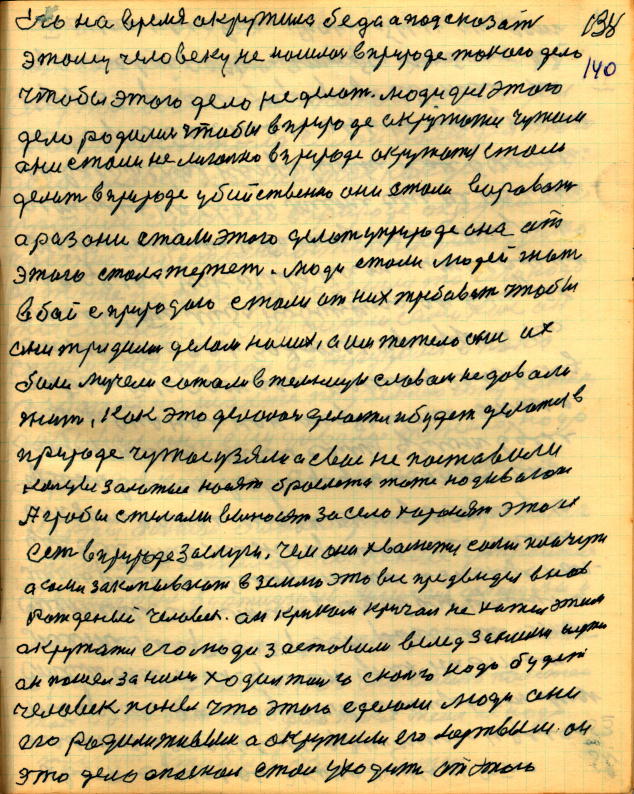 его на время окружила беда а подсказат 138
этому человеку не нашлос в природе такого дело 140
чтобы этого дело не делат. люди для этого
дело родилис чтобы в природе окружатся чужим
они стали не легочко в природе окружатся стали
делат в природе убийственно они стали вароват
а раз они стали этого делат у природе она от
этого стала терпет. люди стали людей гнат
в бой с природою стали от них требоват чтобы
они тридилис делом наших, а им жетело они их
били мучели сажали в тюльницу словам не довали
жит, Как это делалос делается и будет делатся в
природе чужое узяли а свое не поставили
колцы залатые носят браслеты тоже надивают
А гробы стелами выносят за село харонят этого
Ест в природе заслуги, чем они хваляться сами плачут
а сами закапывают в землю это все предвидел внов
рожденый человек. он криком кричал не хотел этим
окружатся его люди заставили вслед за ними
он пошел за ними ходил там сколко надо будет
человек понял что этого сделали люди они
его родили живым а окружили его мертвым. он
это дело опаской стал уходить от этого